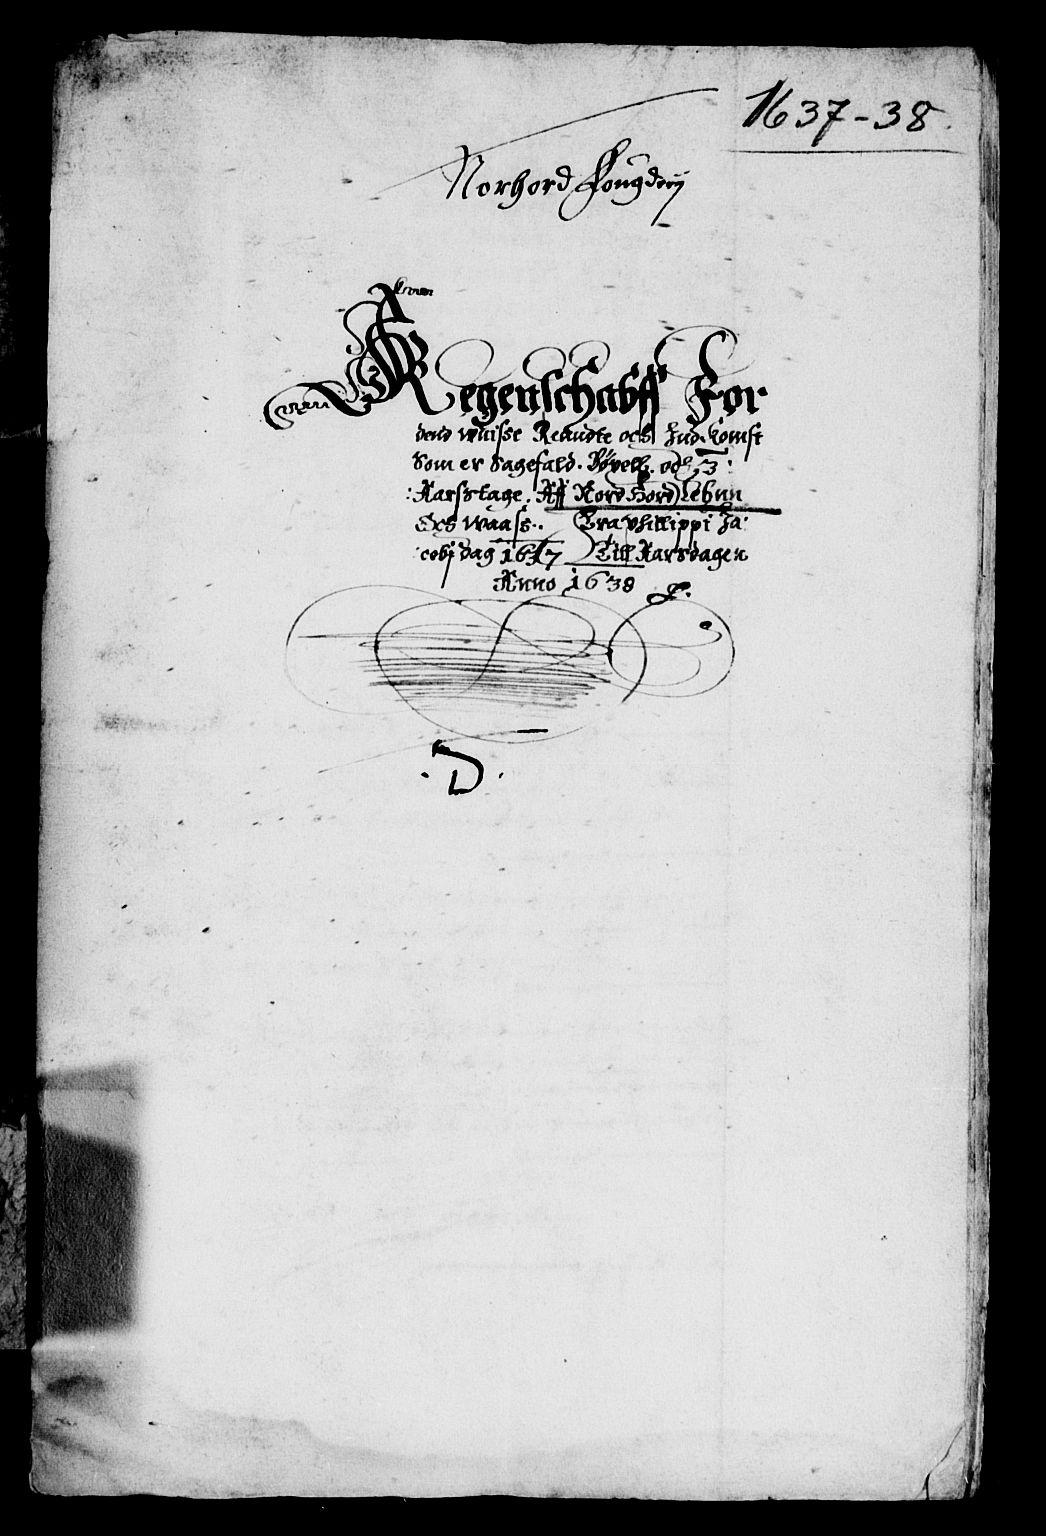 1637-38.
Norhord Fougderij
Regenschabff For
dend wuisse Rendte och Indkomst
Som er Sagefald. Böxell. och 3:
:Aarstage. Aff Nord Hord Lehnn
Och Waass. Fra Phillippi Ja:
:cobj dag 1637 Till Aarsdagen
Anno 1638
. D .